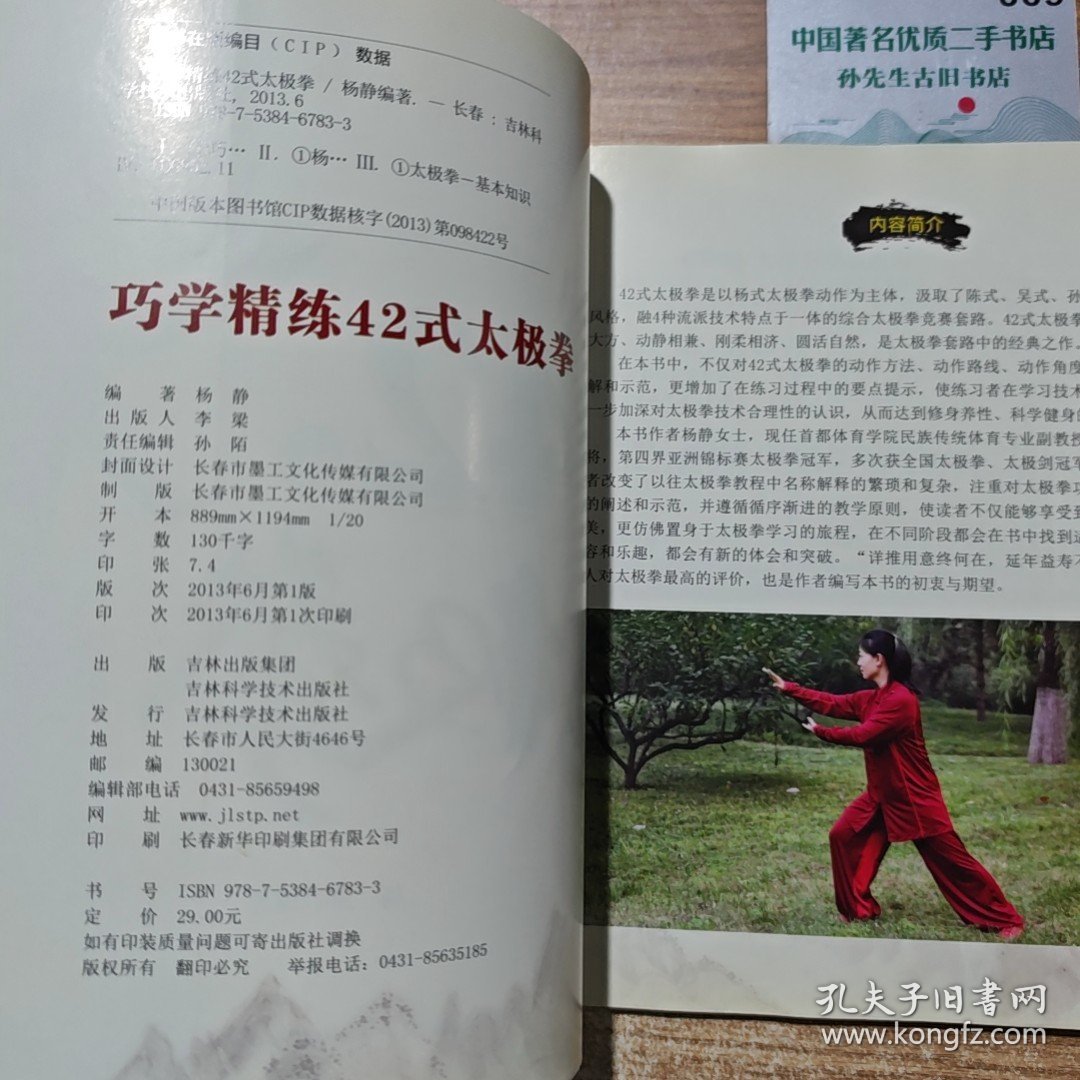 编目(CIP)数据
42式太极拳 / 杨静编著. — 长春: 吉林科
2013.6
-7-5384-6783-3
巧… II. ①杨… III. ①太极拳-基本知识
.11
中国版本图书馆CIP数据核字(2013)第098422号
巧学精练42式太极拳
编 著 杨 静
出版人 李 梁
责任编辑 孙 陌
封面设计 长春市墨工文化传媒有限公司
制 版 长春市墨工文化传媒有限公司
开 本 889mm×1194mm 1/20
字 数 130千字
印 张 7.4
版 次 2013年6月第1版
印 次 2013年6月第1次印刷
出 版 吉林出版集团
吉林科学技术出版社
发 行 吉林科学技术出版社
地 址 长春市人民大街4646号
邮 编 130021
编辑部电话 0431-85659498
网 址 www.jlstp.net
印 刷 长春新华印刷集团有限公司
书 号 ISBN 978-7-5384-6783-3
定 价 29.00元
如有印装质量问题可寄出版社调换
版权所有 翻印必究 举报电话: 0431-85635185
中国著名优质二手书店
孙先生古旧书店
内容简介
42式太极拳是以杨式太极拳动作为主体，汲取了陈式、吴式、孙
风格，融4种流派技术特点于一体的综合太极拳竞赛套路。42式太极拳
大方、动静相兼、刚柔相济、圆活自然，是太极拳套路中的经典之作。
在本书中，不仅对42式太极拳的动作方法、动作路线、动作角度
解和示范，更增加了在练习过程中的要点提示，使练习者在学习技术
一步加深对太极拳技术合理性的认识，从而达到修身养性、科学健身
本书作者杨静女士，现任首都体育学院民族传统体育专业副教授
将，第四界亚洲锦标赛太极拳冠军，多次获全国太极拳、太极剑冠军
者改变了以往太极拳教程中名称解释的繁琐和复杂，注重对太极拳
的阐述和示范，并遵循循序渐进的教学原则，使读者不仅能够享受到
美，更仿佛置身于太极拳学习的旅程，在不同阶段都会在书中找到
容和乐趣，都会有新的体会和突破。“详推用意终何在，延年益寿不
人对太极拳最高的评价，也是作者编写本书的初衷与期望。
孔夫子旧書网
www.kongfz.com